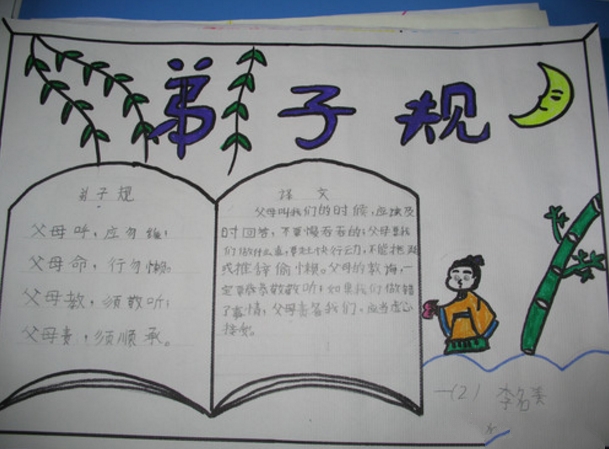 弟子规
弟子规
父母呼，应勿缓；
父母命，行勿懒。
父母教，须敬听；
父母责，须顺承。
译文
父母叫我们的时候，应该及
时回答，不要慢吞吞的；父母要我
们做什么事，要赶快行动，不能拖延
或推辞偷懒。父母的教诲，一
定要恭恭敬敬听；如果我们做错
了事情，父母责备我们，应当虚心
接受。
一(2)